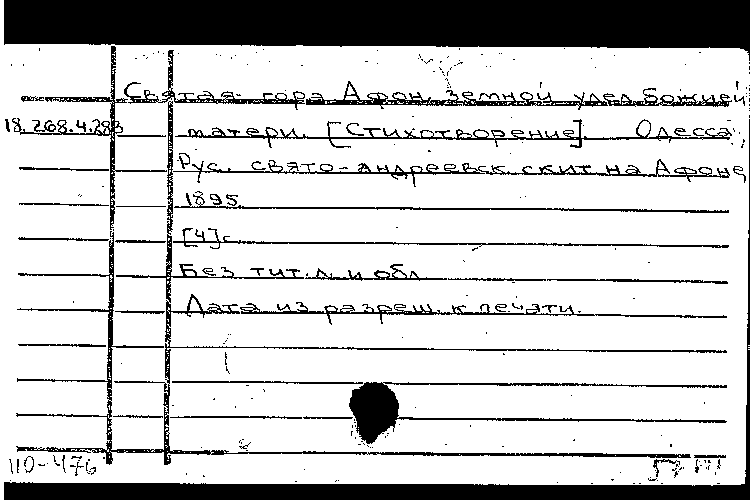 Святая гора Афон, земной удел Божией
18.268.4.283 матери. [Стихотворение]. Одесса,
Рус. свято-андреевск скит на Афоне,
1895.
[4]с.
Без тит. л. и обл
Дата из разреш. к печати.
110-476